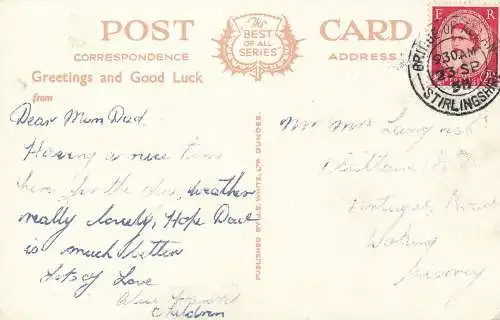 POST CARD
The
BEST
OF ALL
SERIES
CORRESPONDENCE
ADDRESS
Greetings and Good Luck
from
Dear Mum Dad.
Having a nice time
here for the weather
really lovely, Hope Dad
is much better
Lots of Love
Children
PUBLISHED BY J.B. WHITE, LTD. DUNDEE.
Mr Mrs
Portugal Road
Woking
Surrey
E R
BRIDGE OF
9 30 AM
23 SP
STIRLINGSHIRE